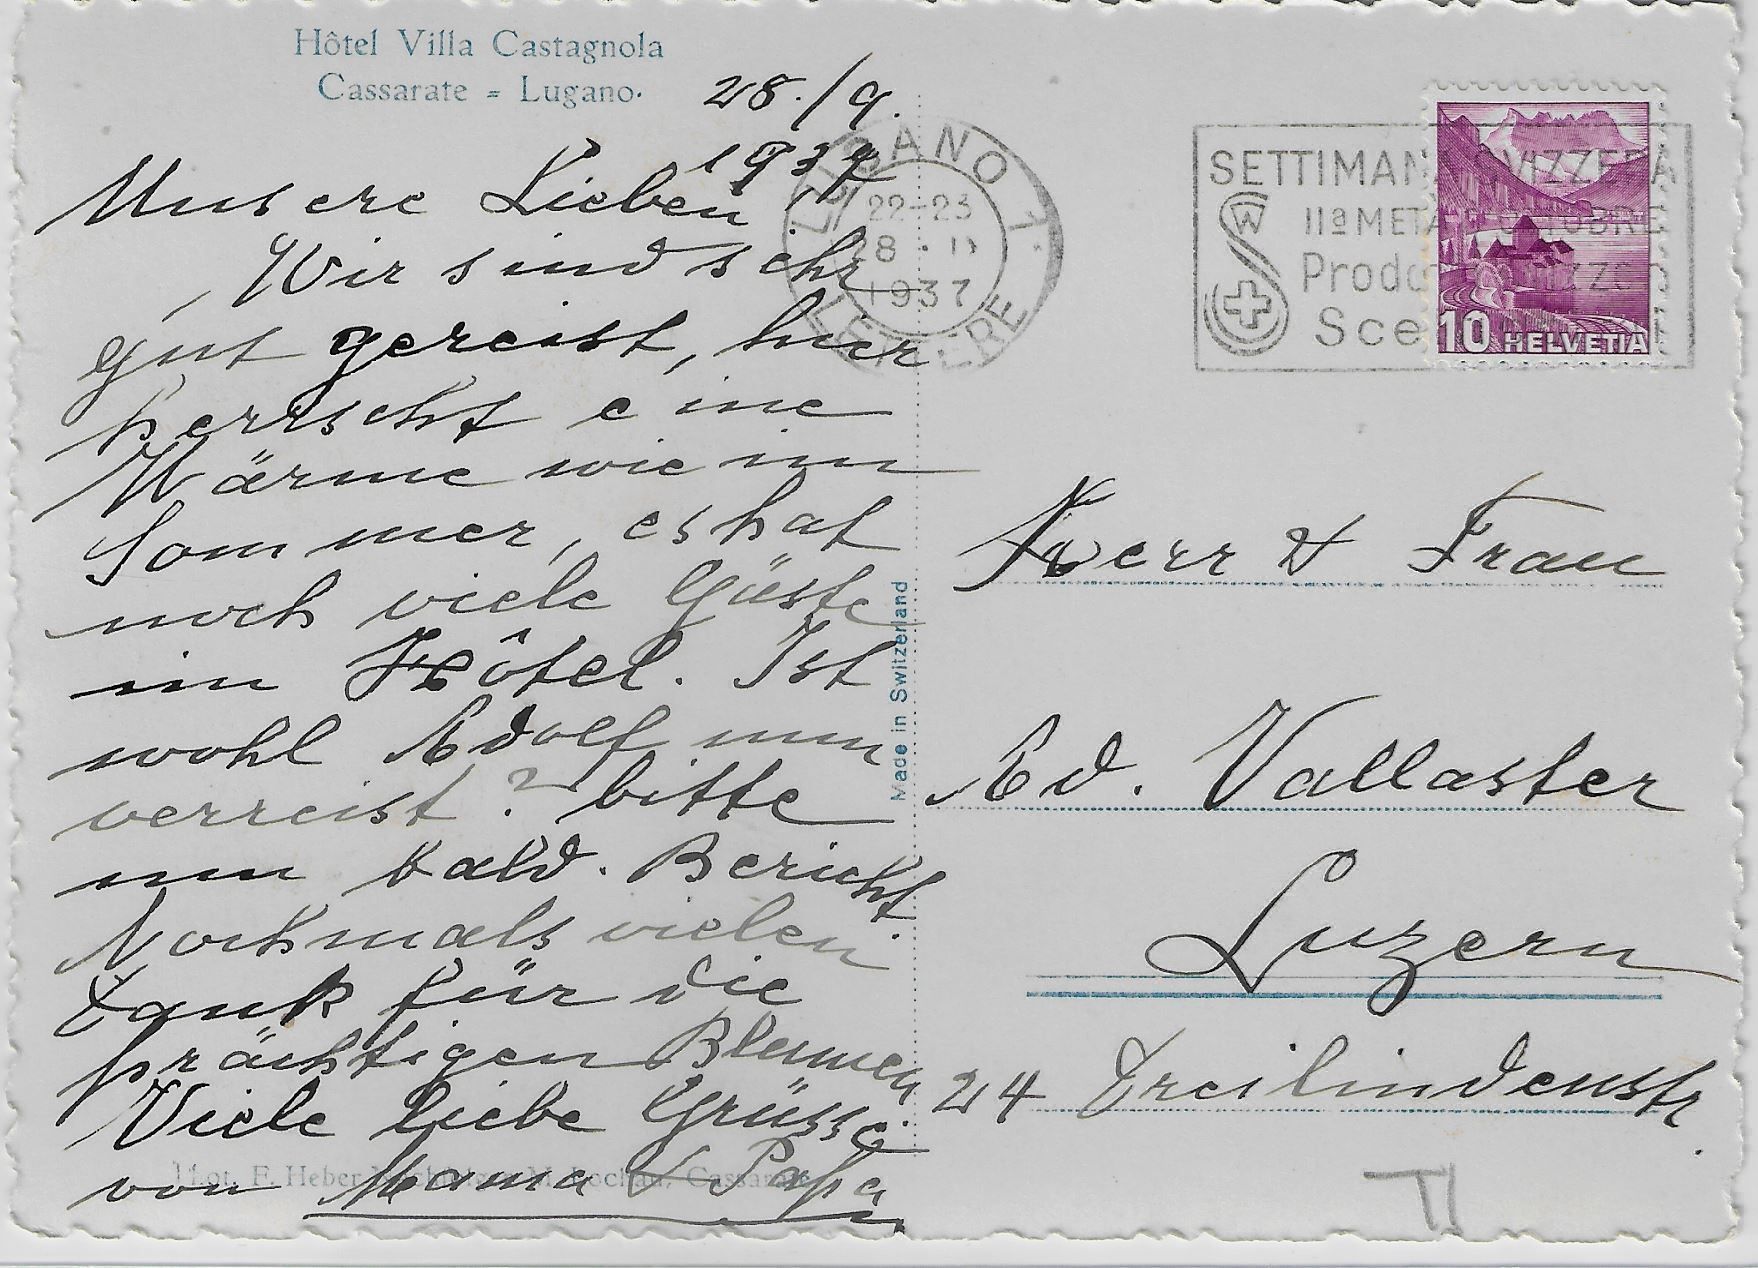 Hôtel Villa Castagnola
Cassarate - Lugano.
28./9.
1937
Unsere Lieben!
Wir sind sehr
gut gereist, hier
herrscht eine
Wärme wie im
Sommer, es hat
noch viele Gäste
im Hôtel. Ist
wohl Adolf nun
verreist? bitte
um bald. Bericht.
Nochmals vielen
Dank für die
prächtigen Blumen
Viele liebe Grüsse
von Mama & Papa
Phot. F. Heber Cassarate
Made in Switzerland
LUGANO 1
22-23
1937
LETTERE
SETTIMANA SVIZZERA
IIª METÀ OTTOBRE
SW
10 HELVETIA
Herr & Frau
Ad. Vallaster
Luzern
24 Dreilindenstr.
T